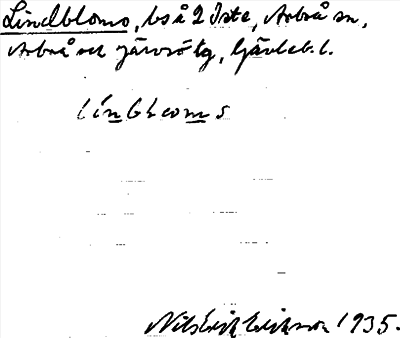 Lindbloms, bs å 2 Iste, Arbrå sn,
Arbrå och Järvsö tg, Gävleb. l.
línbloms
Nils Erik Eriksson 1935.